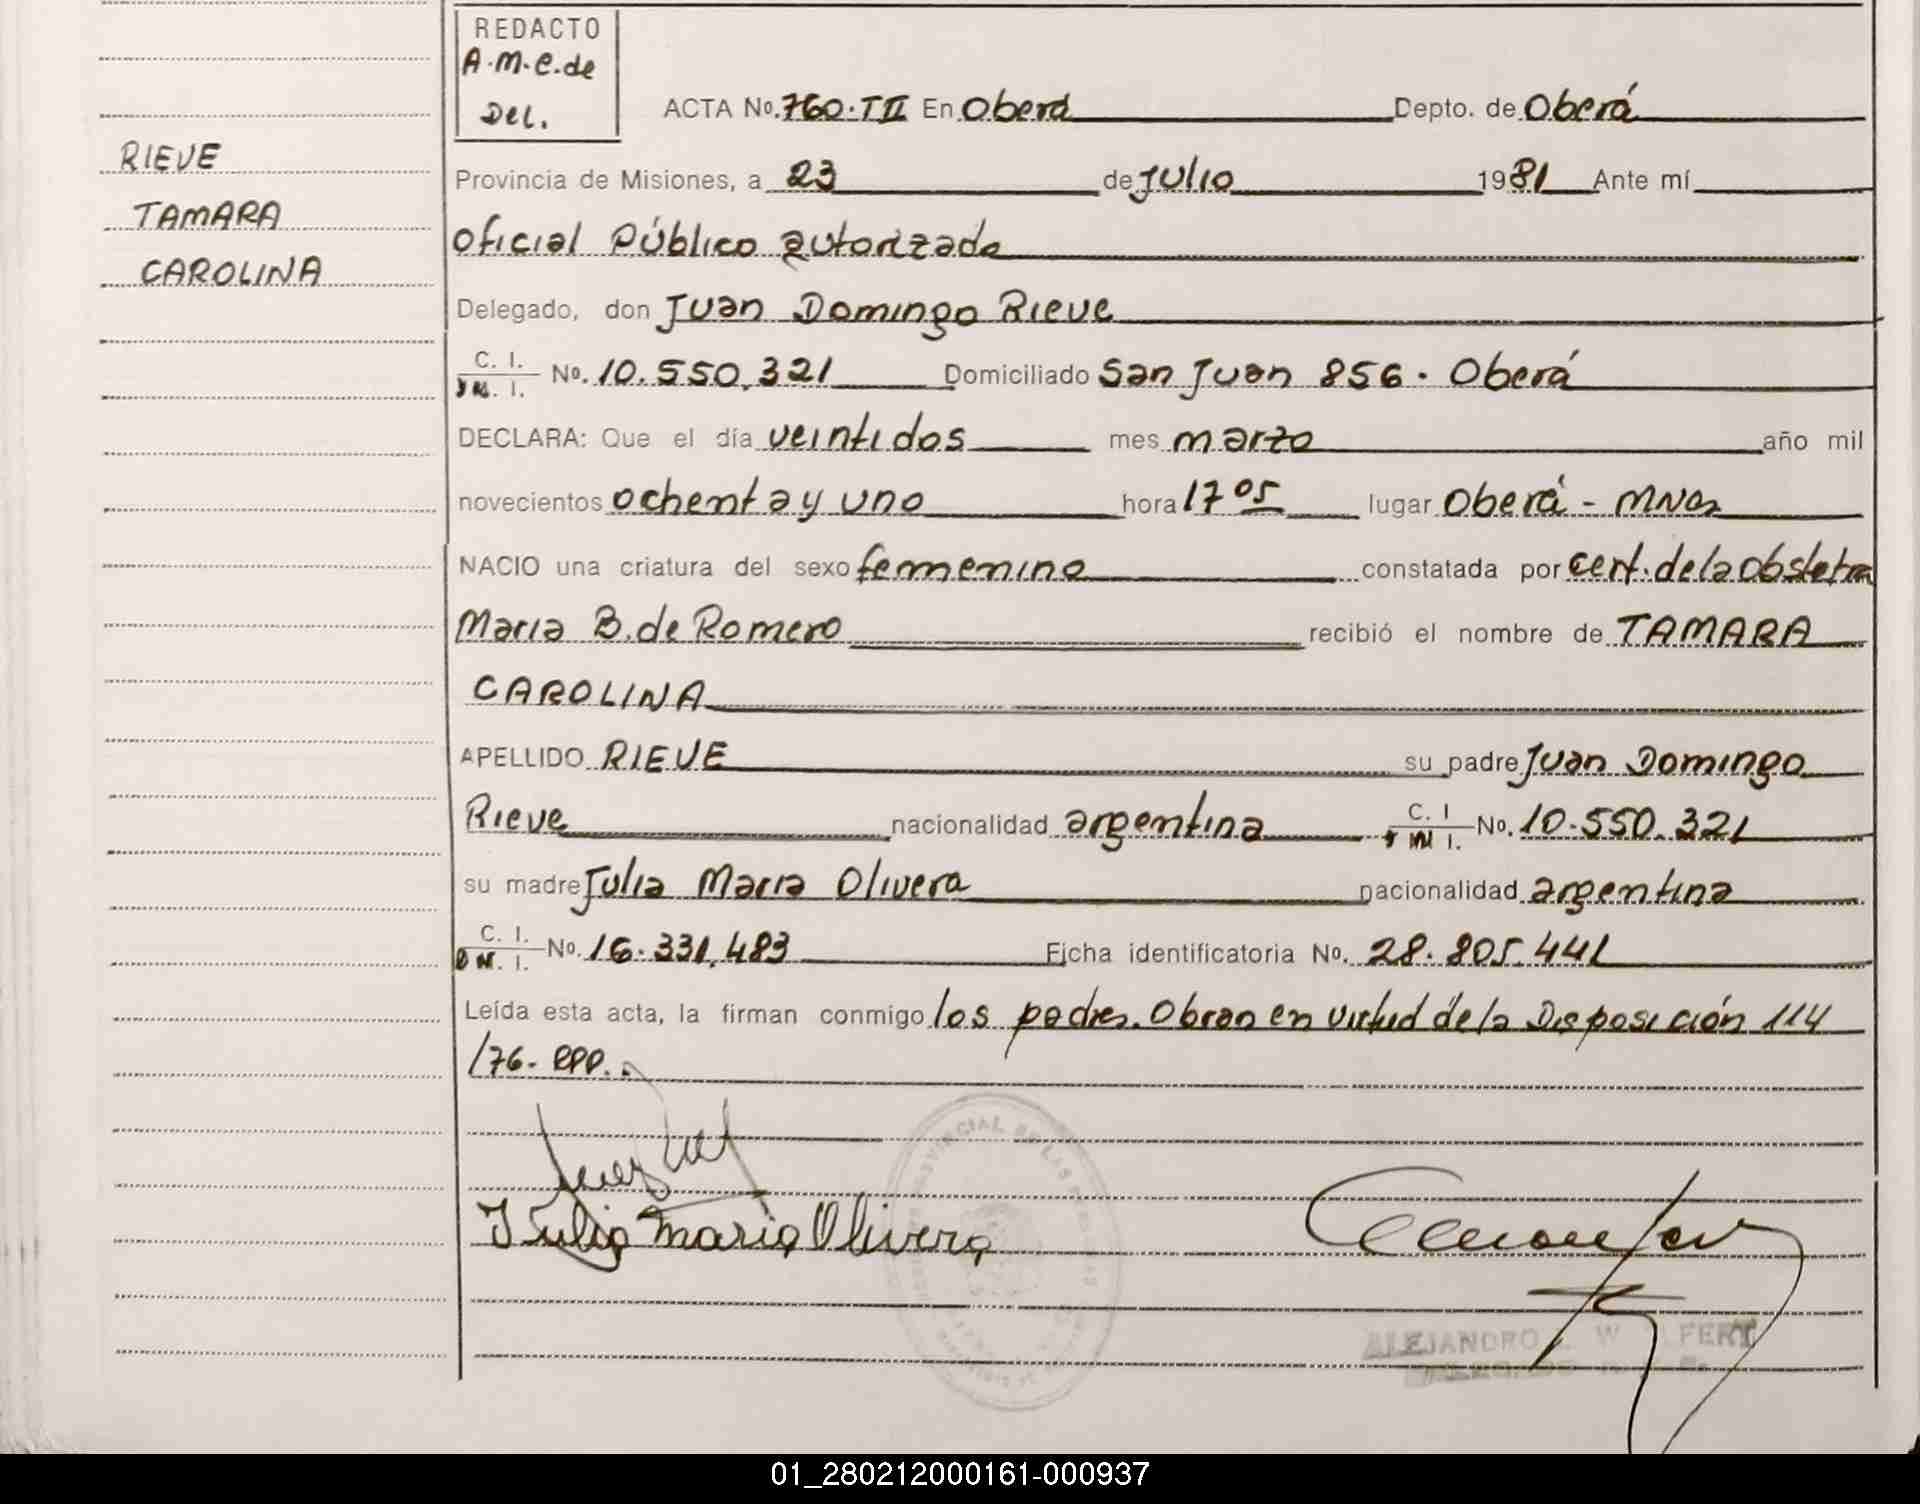 REDACTO
A.M.C. de
Del.
ACTA No. 760. TII En Oberá Depto. de Oberá
RIEVE
TAMARA
CAROLINA
Provincia de Misiones, a 23 de Julio 1981 Ante mí
Oficial Público autorizada
Delegado, don Juan Domingo Rieve
C. I. No. 10.550.321 Domiciliado San Juan 856. Oberá
DECLARA: Que el día veintidos mes marzo año mil
novecientos ochenta y uno hora 17 05 lugar Oberá - MNes
NACIO una criatura del sexo femenino constatada por cert. de la obstetra
Maria B. de Romero recibió el nombre de TAMARA
CAROLINA
APELLIDO RIEVE su padre Juan Domingo
Rieve nacionalidad argentina C. I No. 10.550.321
su madre Julia Maria Olivera nacionalidad argentina
C. I. D N. I. No. 16.331.483 Ficha identificatoria No. 28.805.441
Leída esta acta, la firman conmigo los padres. Obran en virtud de la Disposición 114
/76- RPP.
Julia Maria Olivera
ALEJANDRO
01_280212000161-000937